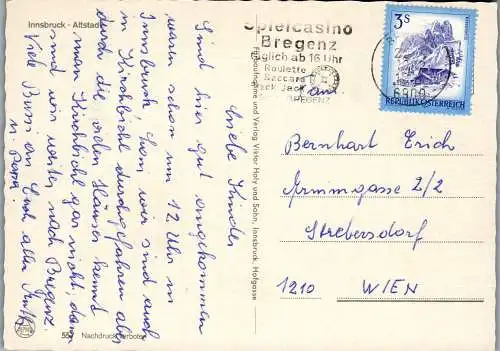 Innsbruck - Altstadt
Liebe Kinder
Sind hier gut angekommen
waren schon um 12 Uhr in
Innsbruck. Livw wir sind auch
in Kirchbichl durchgefahren aber
durch die vielen Häuser kennt
man Kirchbichl gar nicht, dann
sind wir weiter nach Bregenz.
Viele Bussi an Euch alle Mutti
u Papa.
557 Nachdruck verboten
Flugaufnahme und Verlag Viktor Hofy und Sohn, Innsbruck, Hofgasse
Spielcasino
Bregenz
täglich ab 16 Uhr
Roulette
Baccara
Black Jack
BREGENZ
6900
3S
REPUBLIK ÖSTERREICH
an
Bernhart Erich
Grimmgasse 2/2
Strebersdorf
1210 WIEN